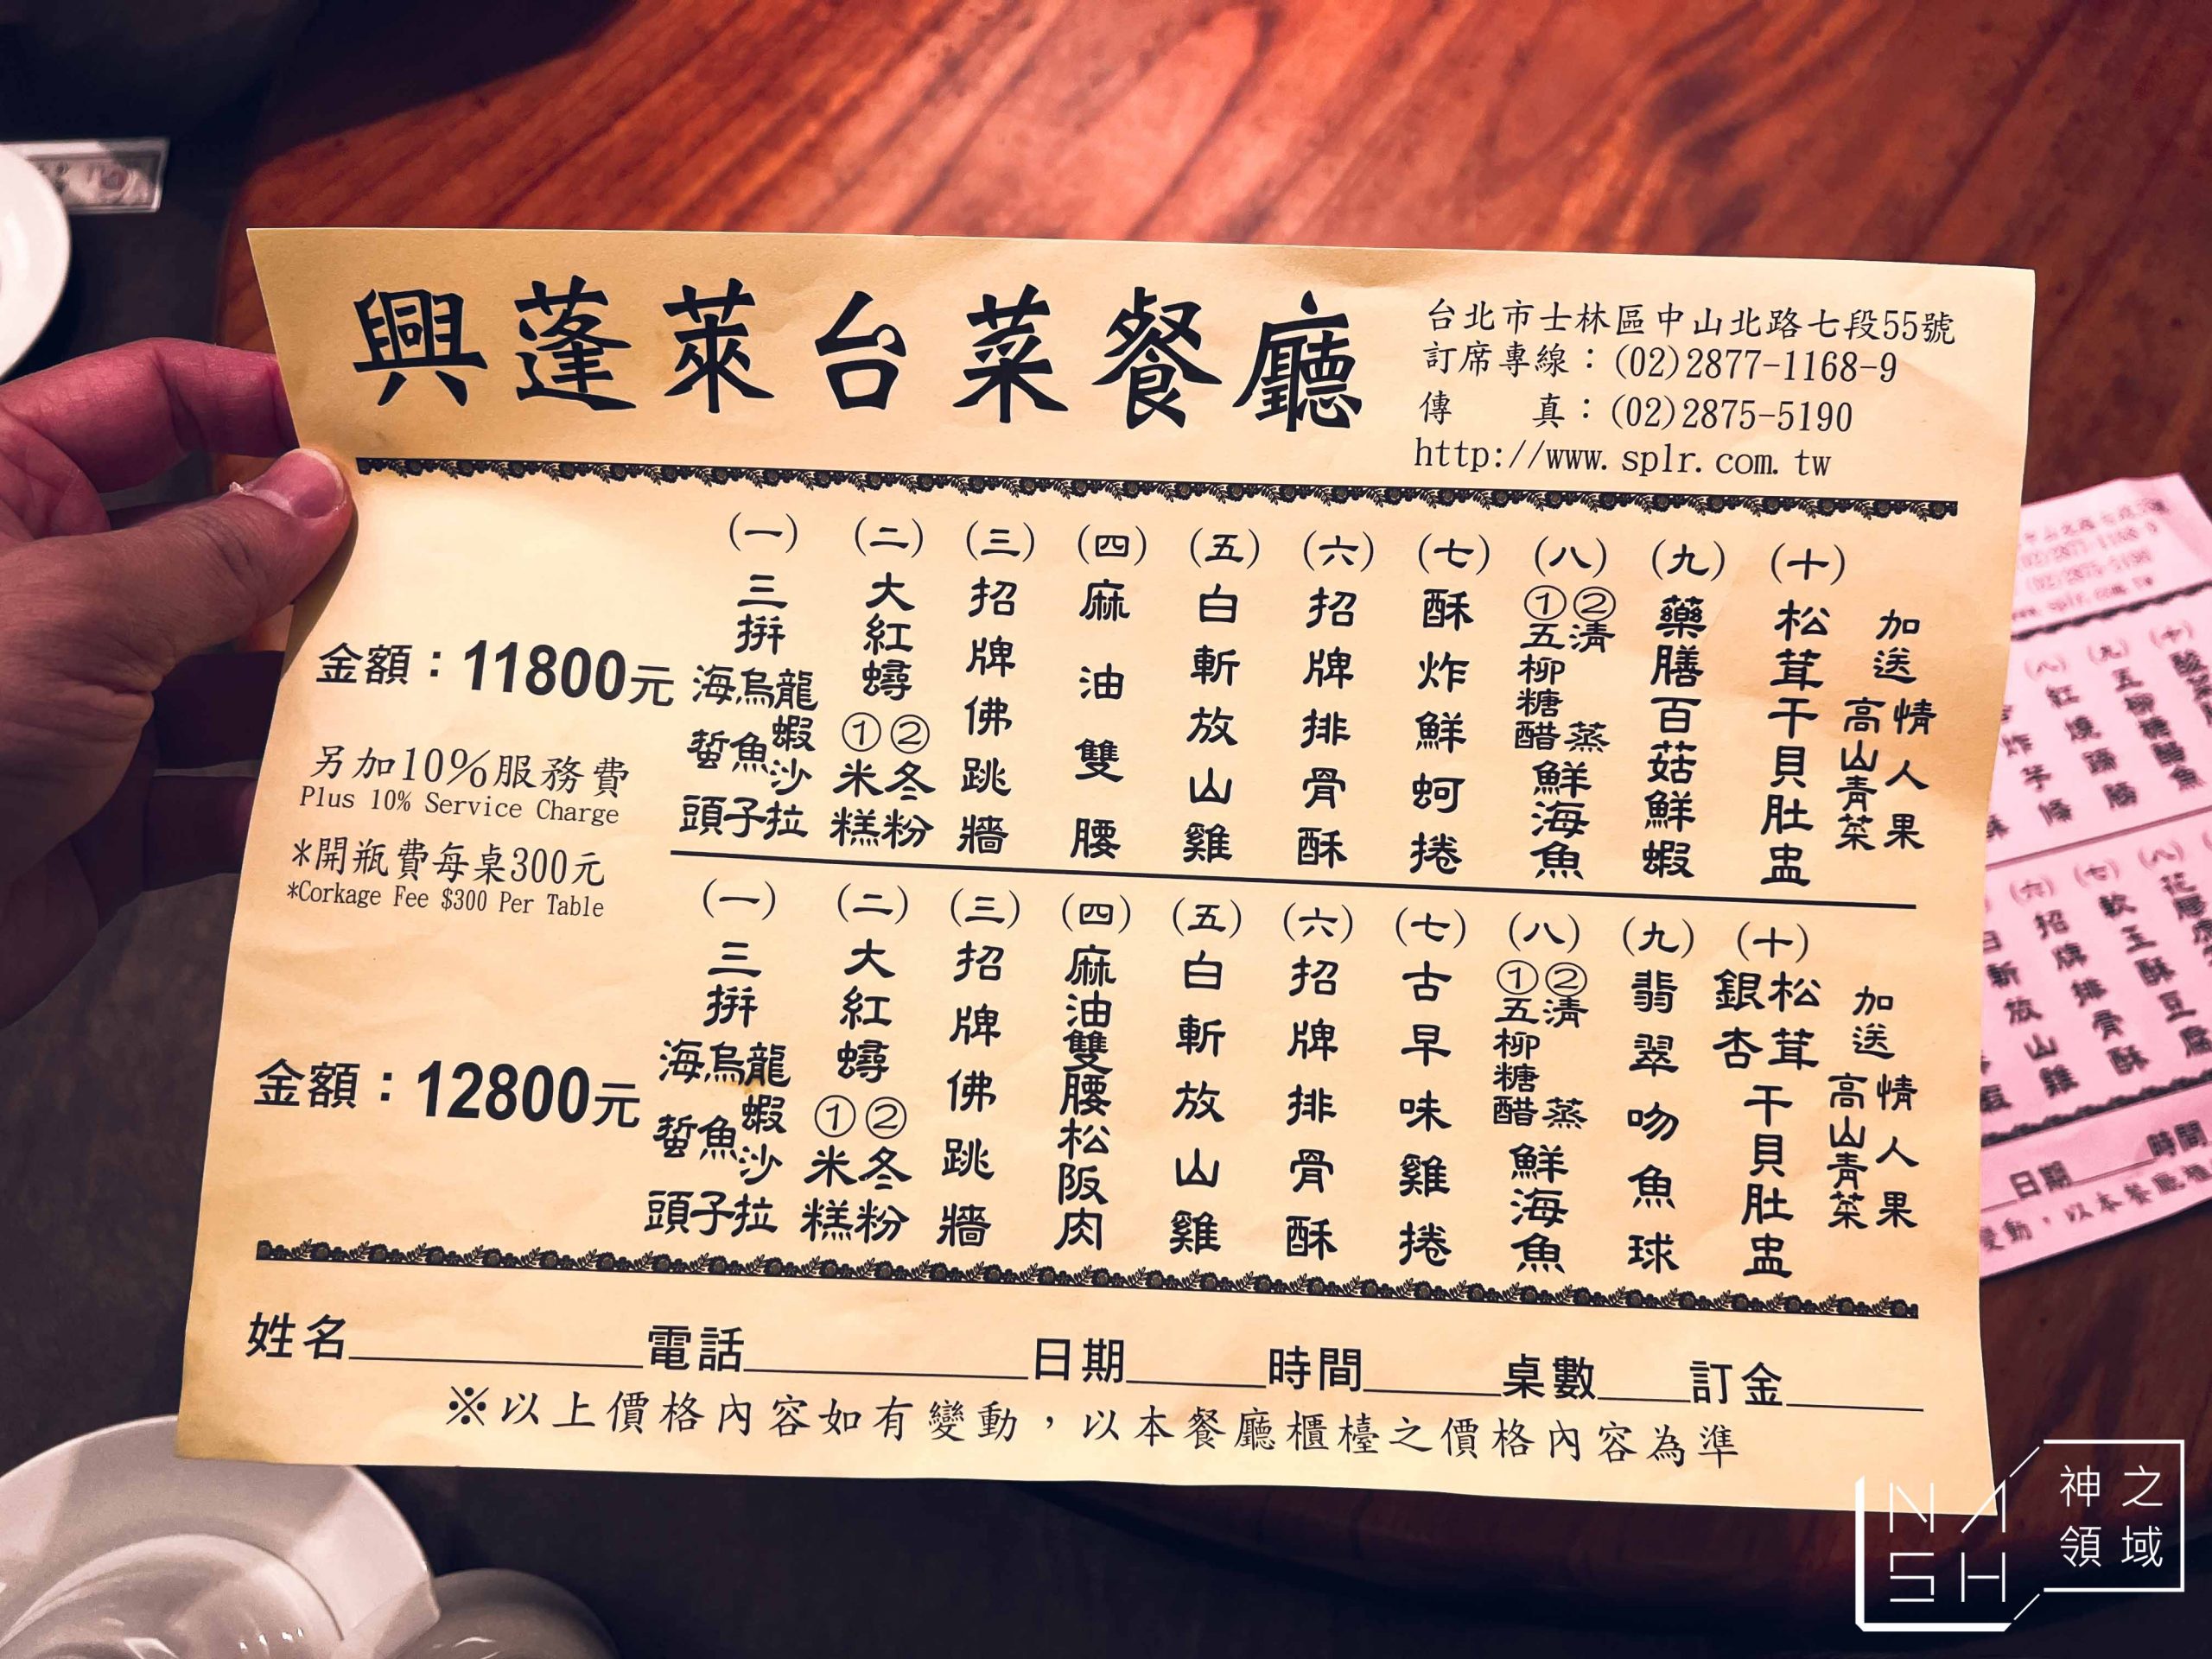 興蓬萊台菜餐廳
台北市士林區中山北路七段55號
訂席專線：(02)2877-1168-9
傳　　真：(02)2875-5190
http://www.splr.com.tw
金額：11800元
另加10%服務費
Plus 10% Service Charge
*開瓶費每桌300元
*Corkage Fee $300 Per Table
(一) 三拼 海蜇頭 烏魚子 龍蝦沙拉
(二) 大紅蟳 ①米糕 ②冬粉
(三) 招牌佛跳牆
(四) 麻油雙腰
(五) 白斬放山雞
(六) 招牌排骨酥
(七) 酥炸鮮蚵捲
(八) ①五柳糖醋 ②清蒸 鮮海魚
(九) 藥膳百菇鮮蝦
(十) 松茸干貝肚盅
加送 高山青菜 情人果
金額：12800元
(一) 三拼 海蜇頭 烏魚子 龍蝦沙拉
(二) 大紅蟳 ①米糕 ②冬粉
(三) 招牌佛跳牆
(四) 麻油雙腰松阪肉
(五) 白斬放山雞
(六) 招牌排骨酥
(七) 古早味雞捲
(八) ①五柳糖醋 ②清蒸 鮮海魚
(九) 翡翠吻魚球
(十) 銀杏松茸干貝肚盅
加送 高山青菜 情人果
姓名 電話 日期 時間 桌數 訂金
※以上價格內容如有變動，以本餐廳櫃檯之價格內容為準
(八) 紅燒蹄膀
(九) 五柳糖醋魚
(十)
(六) 招牌排骨酥
(七) 軟玉酥豆腐
(八)
日期 時間
NASH
神之領域